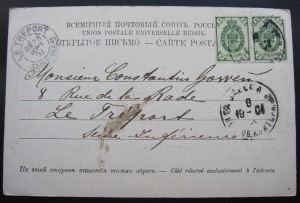 ВСЕМІРНЫЙ ПОЧТОВЫЙ СОЮЗ. РОССІЯ
UNION POSTALE UNIVERSELLE RUSSIE.
ОТКРЫТОЕ ПИСЬМО — CARTE POSTALE
LE TREPORT
Monsieur Constantin
8 Rue de la Rade
Le Tréport
Seine-Inférieure
На этой сторонѣ пишется только адресъ. — Côté réservé exclusivement à l'adresse